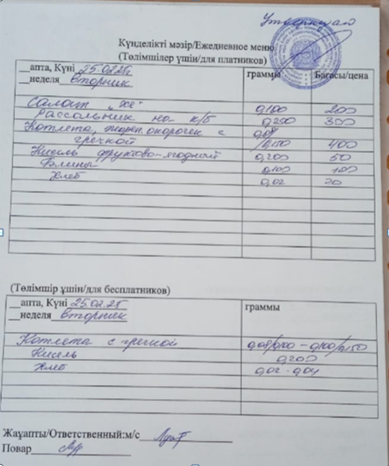 Утверждаю
Күнделікті мәзір/Ежедневное меню
(Төлімшілер үшін/для платников)
__апта, Күні 25.02.25 граммы Бағасы/цена
__неделя вторник
Салат 0,100 200
Рассольник на к/б 0,200 300
Котлета, с 0,08
гречкой /0,150 400
Кисель фруктово-ягодный 0,200 50
0,100 100
Хлеб 0,02 20
(Төлімшір үшін/для бесплатников)
__апта, Күні 25.02.25 граммы
__неделя вторник
Котлета с гречкой
Кисель 0,200
Хлеб 0,02-0,04
Жауапты/Ответственный:м/с
Повар